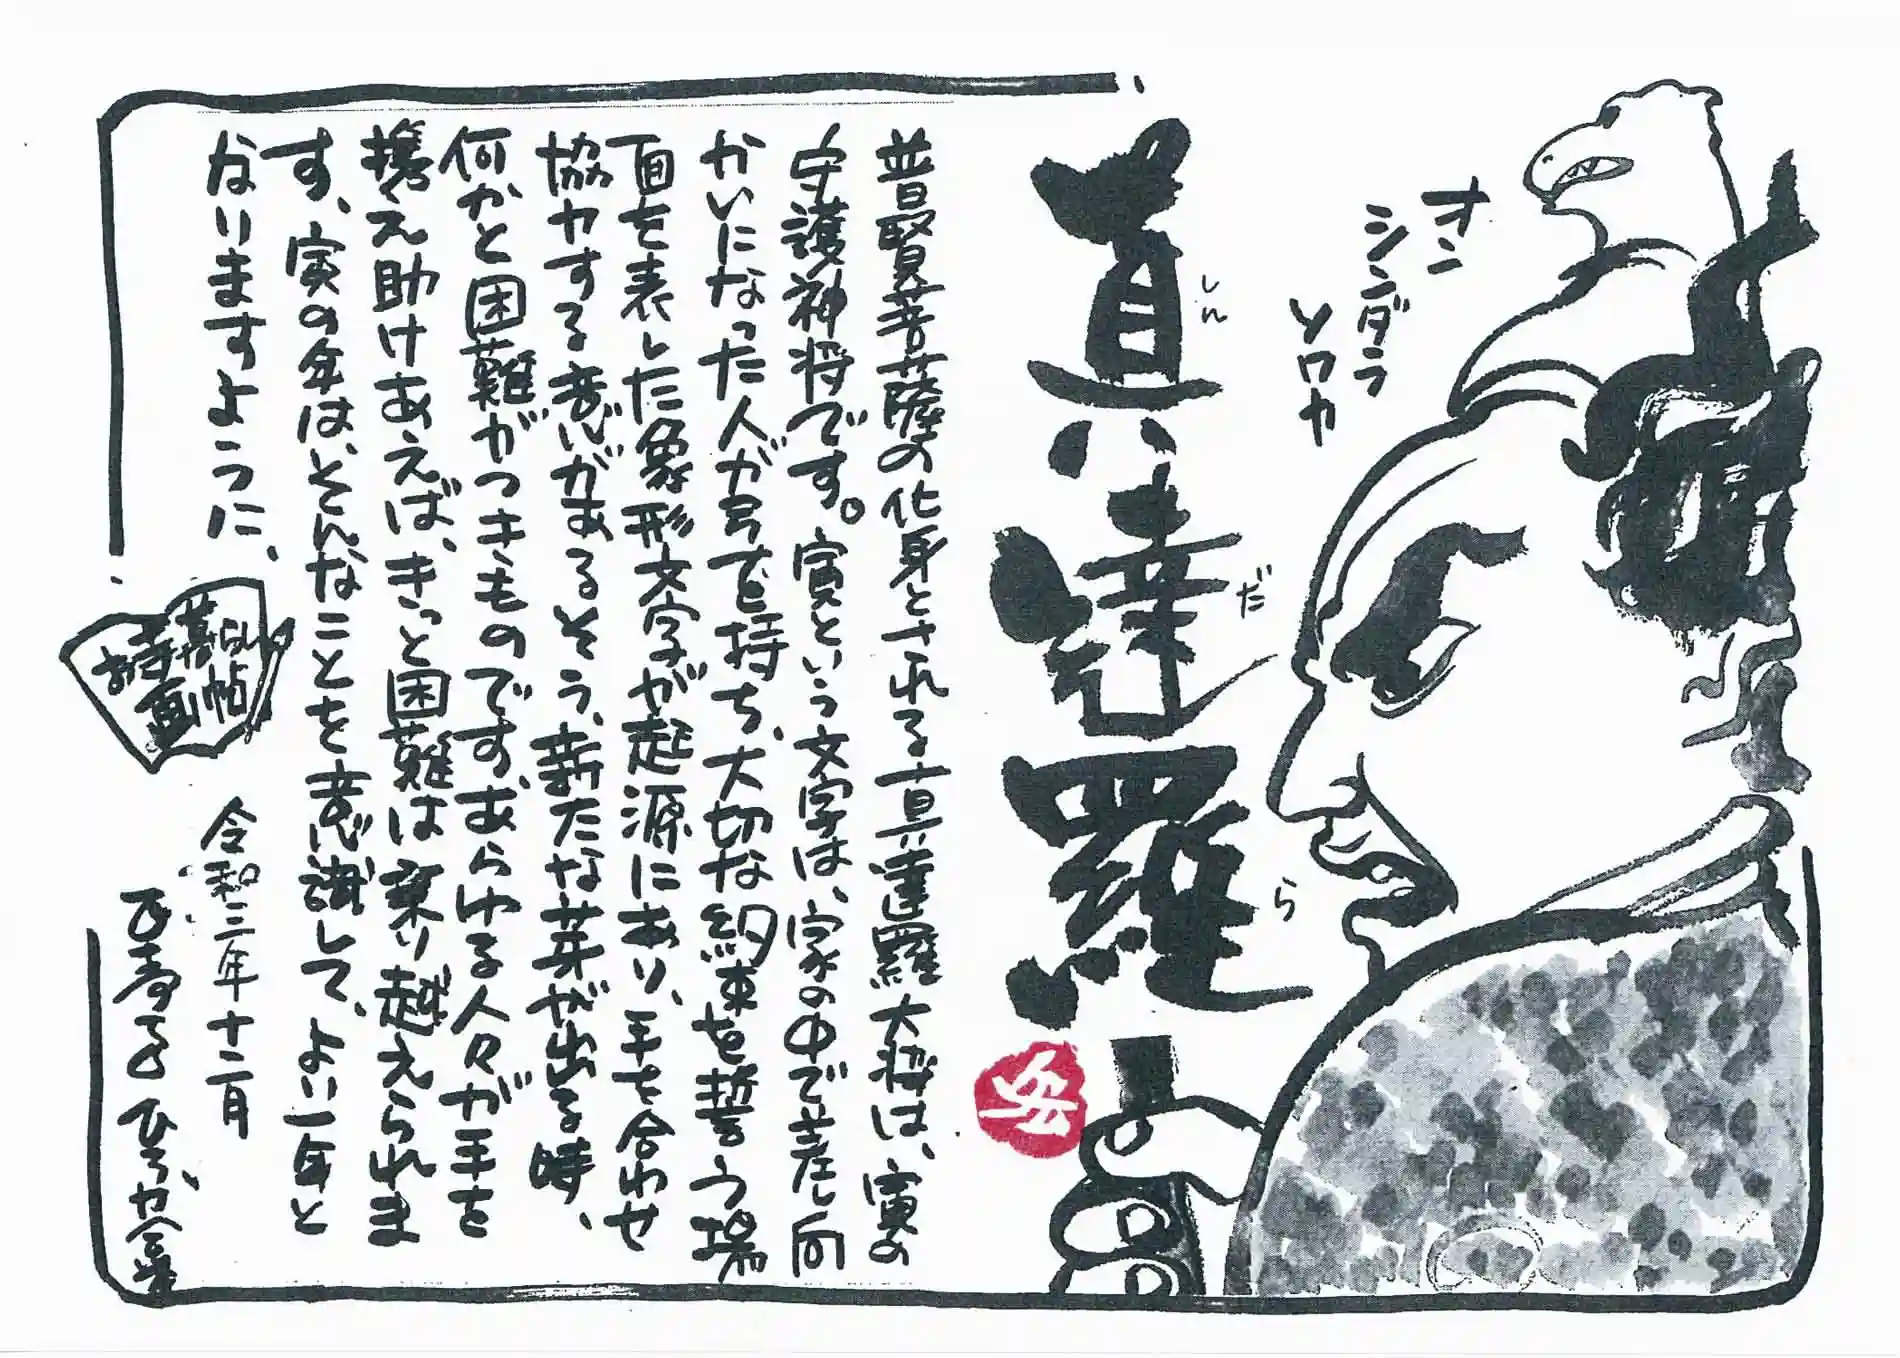 オン
シンダラ
ソワカ
真達羅
しん
だ
ら
普賢菩薩の化身とされる真達羅大将は、寅の
守護神将です。寅という文字は、家の中で差し向
かいになった人が弓を持ち、大切な約束を誓う場
面を表した象形文字が起源にあり、手を合わせ
協力する意があるそう、新たな芽が出る時、
何かと困難がつきものです。あらゆる人々が手を
携え助けあえば、きっと困難は乗り越えられま
す、寅の年は、そんなことを意識して、よい一年と
なりますように、
お寺暮らし
画帖
令和三年十二月